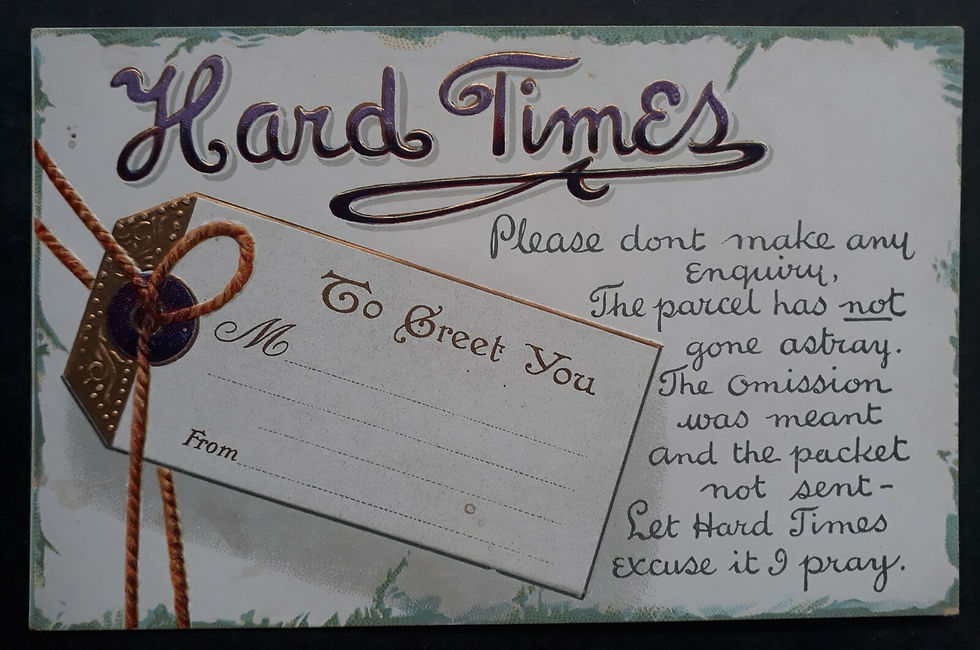 Hard Times
To Greet You
M
From
Please dont make any
Enquiry,
The parcel has not
gone astray.
The omission
was meant
and the packet
not sent-
Let Hard Times
excuse it I pray.